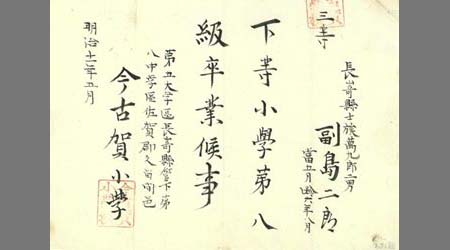 三等
長崎縣士族萬九郎二男
副島二郎
當五月拾六年八月
下等小學第八
級卒業候事
第五大学區長崎縣管下第
八中学區佐賀郡
今古賀小學
明治十一年五月